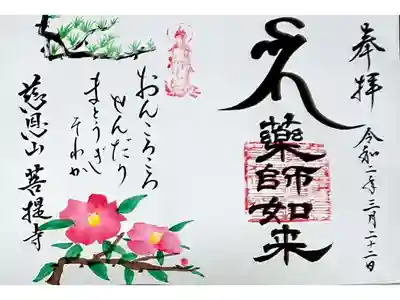 奉拝
令和二年三月二十二日
藥師如来
おんころころ
せんだり
まとうぎ
そわか
慈恩山 菩提寺